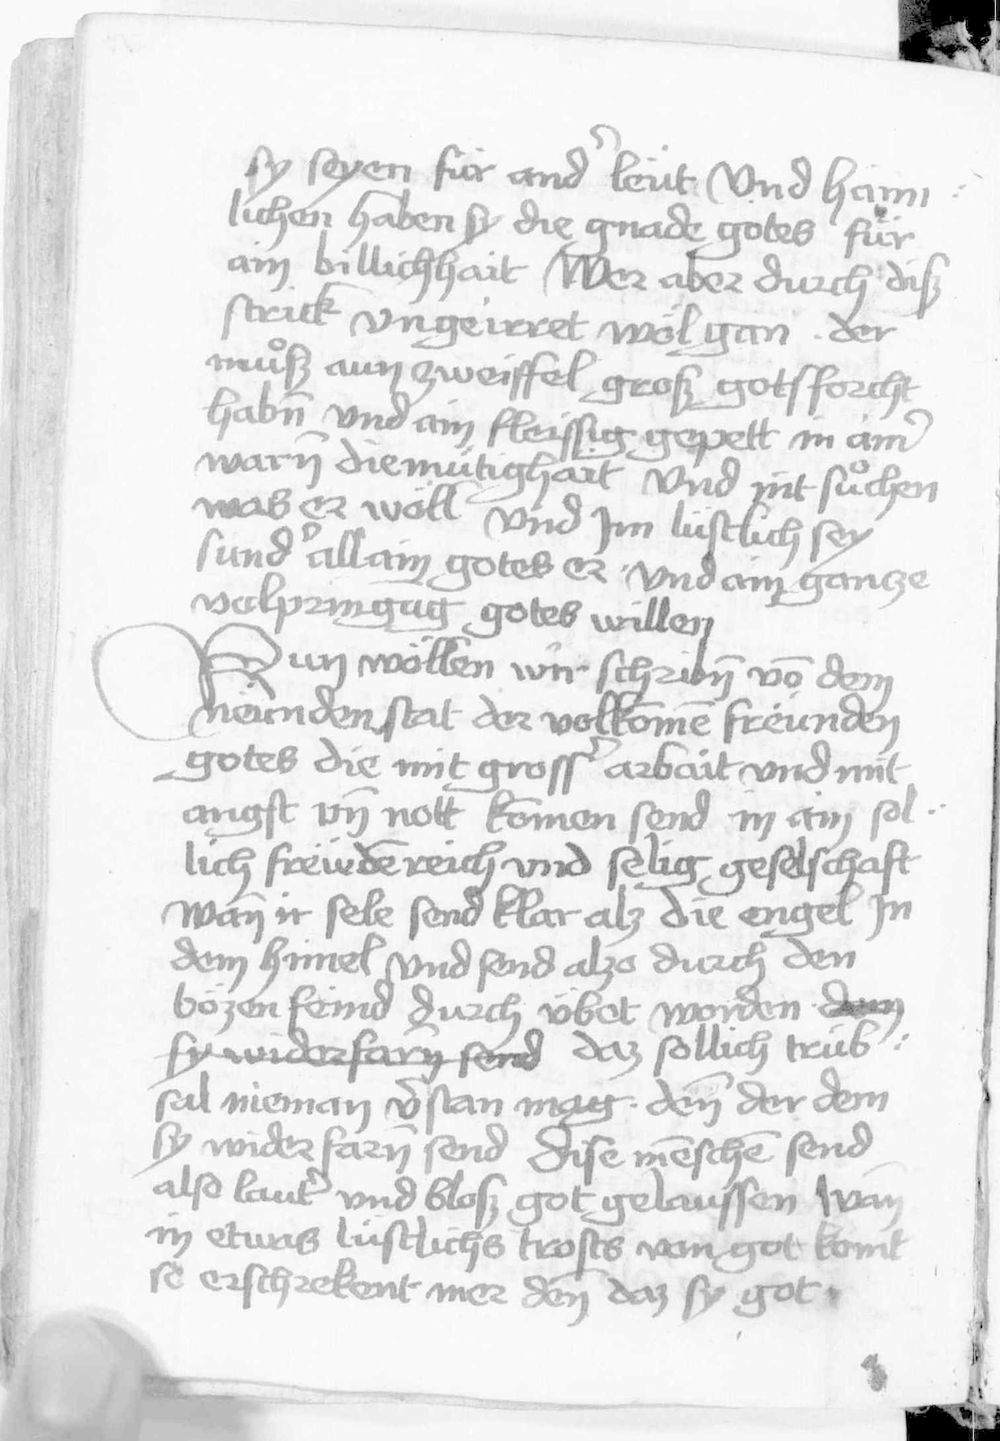 sy seyen für and͛ leüt Vnd haim
lichen haben sy die gnade gotes für
ain billichhait Wer aber durch diß
strick vngeirret wöl gan · der
muͦß aun zweiffel groß gotsforcht
habn̄ vnd ain fleissig gepett in aim͛
warn̄ diemütighait Vnd nit suͦchen
was er wöll Vnd Im lüstlich sey
sund͛ allain gotes er · vnd ain gancze
volpringūg gotes willen
Nun wöllen wir schribn̄ vō dem
neünden stat der volkōmē freünden
gotes die mit gross͛ arbait vnd mit
angst vn̄ nott kōmen send in ain sol
lich freüdēreich vnd selig geselschaft
wan̄ ir sele send klar alz die engel In
dem himel Vnd send alzo durch den
bözen feind durch übet worden den
sy widerfarn̄ send daz sollich trüb
sal nieman v͛stan mag · den̄ der dem
sy wider farn̄ send Dise mēschē send
alse laut͛ vnd bloß got gelaussen Wan̄
in etwas lüstlichs trosts von got komt
se erschrekent mer den̄ daz sy got